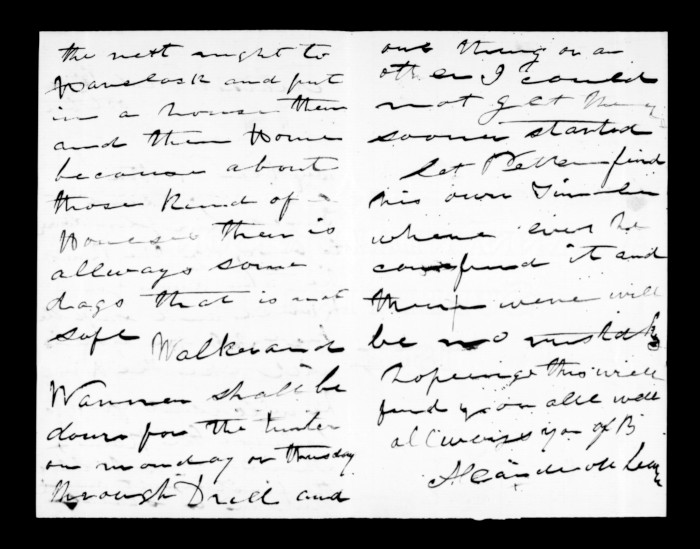 the next night to
and put
in a house then
and then Home
because about
those Kind of
Houses then is
allways some
dags that is not
soft Walker and
shall be
down for the
on monday or thursday
through Drill and
one thing or an
other I could
not get them
sooner started
Let find
his own Timber
where ever he
can find it and
then were will
be no mistak
hopeing this well
find you all well
all ways you of B